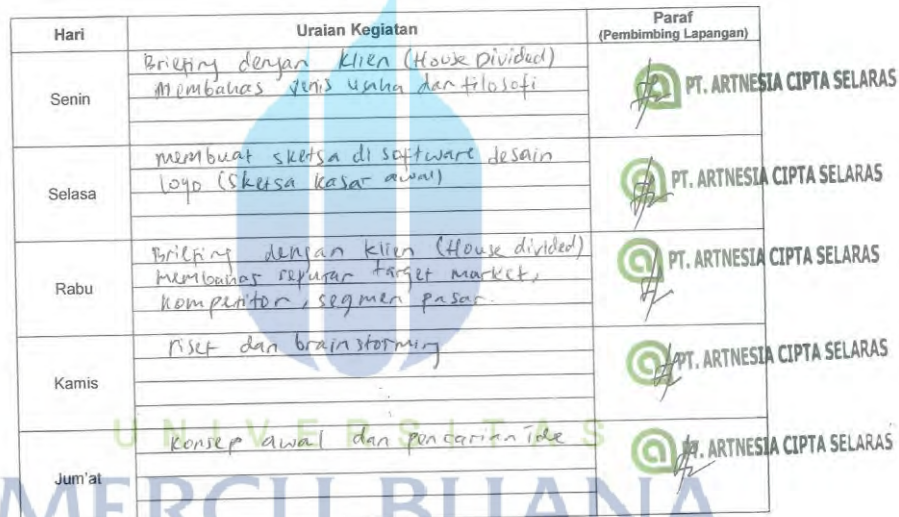 Hari Uraian Kegiatan Paraf
(Pembimbing Lapangan)
Senin
Briefing dengan Klien (House Divided)
Membahas jenis usaha dan filosofi
PT. ARTNESIA CIPTA SELARAS
Selasa
membuat sketsa di software desain
logo (sketsa kasar awal)
PT. ARTNESIA CIPTA SELARAS
Rabu
Briefing dengan klien (House divided)
membahas seputar target market,
kompetitor, segmen pasar.
PT. ARTNESIA CIPTA SELARAS
Kamis
riset dan brainstorming
PT. ARTNESIA CIPTA SELARAS
Jum'at
Konsep awal dan pencarian ide
PT. ARTNESIA CIPTA SELARAS
UNIVERSITAS
MERCU BUANA